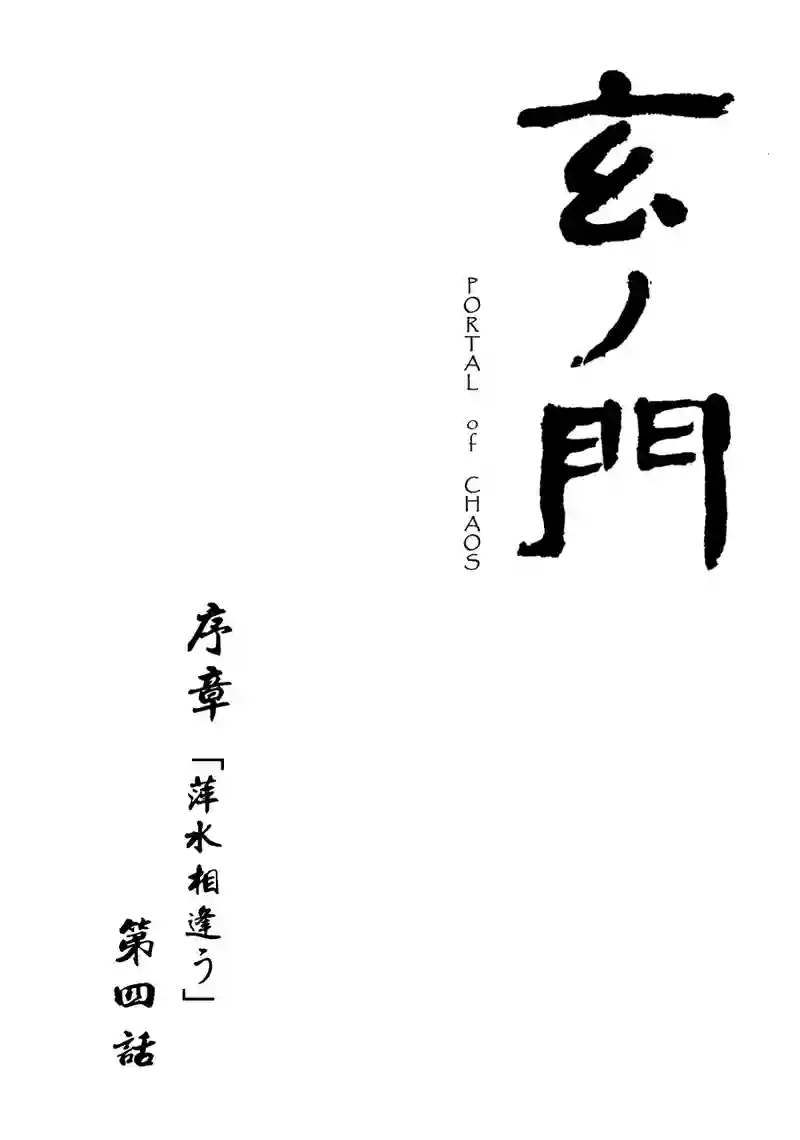 玄ノ門
PORTAL of CHAOS
序章「萍水相逢う」
第四話